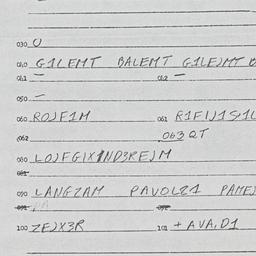 030 U
040 G1LEMT BALEMT G1LEJMT B
041 — 042 —
050 —
060 ROJF1M 061 R1FIJ1S1L
062 063 QT
080 LOJFGIX1ND3REJM
081
090 LANGZAM PAVOLZ1 PAMEJ
091 092
100 ZEJX3R 101 + AVA,D1